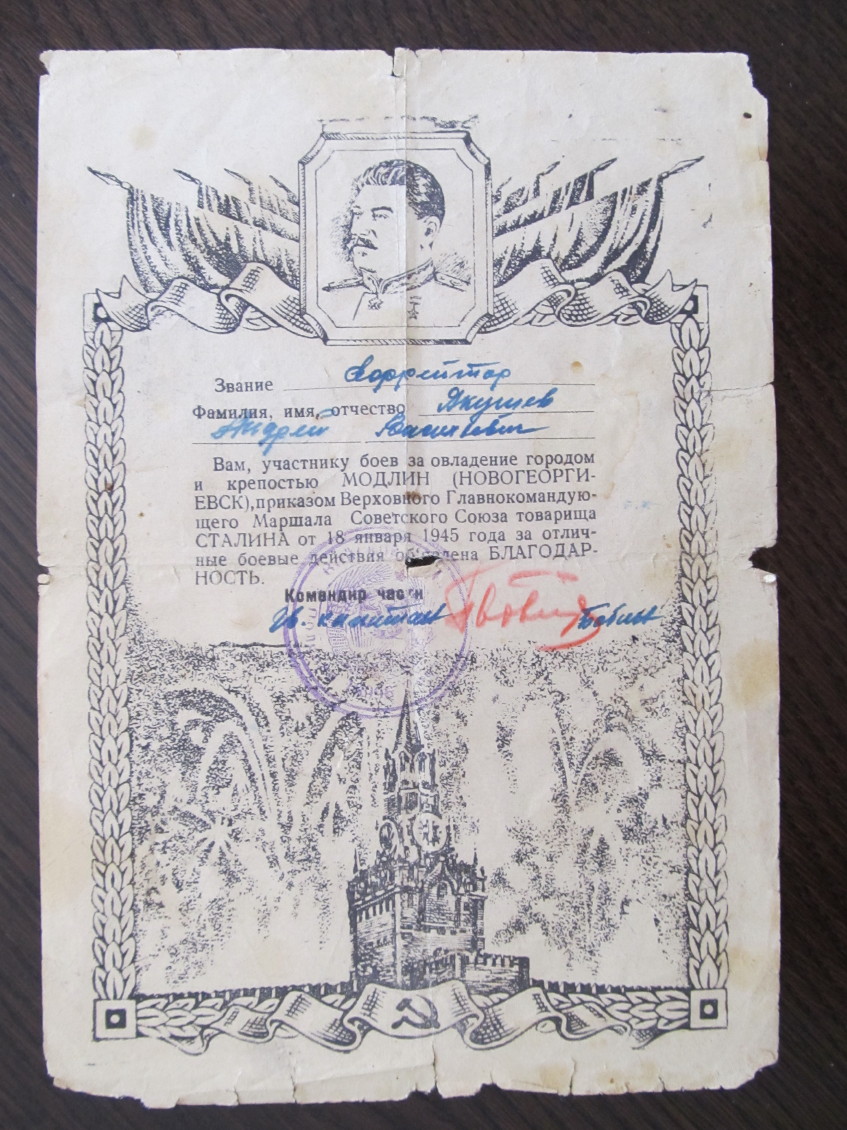 Звание Ефрейтор
Фамилия, имя, отчество Якушев
Андрей Васильевич
Вам, участнику боев за овладение городом
и крепостью МОДЛИН (НОВОГЕОРГИ-
ЕВСК), приказом Верховного Главнокомандую-
щего Маршала Советского Союза товарища
СТАЛИНА от 18 января 1945 года за отлич-
ные боевые действия объявлена БЛАГОДАР-
НОСТЬ.
Командир части
гв. капитан